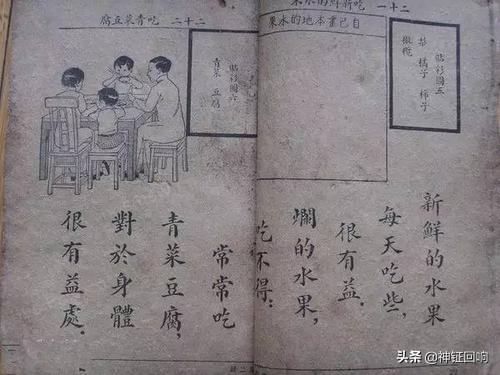 二十一 吃新鮮的水果
自己畫本地的水果
貼彩圖五
橘子 柿子
橄欖
新鮮的水果
每天吃些,
很有益.
爛的水果,
吃不得:
二十二 吃青菜豆腐
貼彩圖六
青菜 豆腐
常常吃
青菜豆腐,
對於身體
很有益處.
头条 @神钲回响